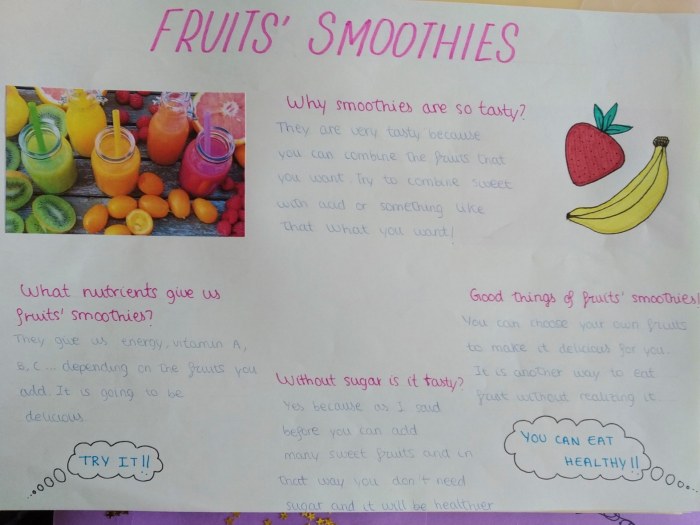 FRUITS' SMOOTHIES
Why smoothies are so tasty?
They are very tasty because
you can combine the fruits that
you want. Try to combine sweet
with acid or something like
that what you want!
What nutrients give us
fruits' smoothies?
They give us energy, vitamin A,
B, C ... depending on the fruits you
add. It is going to be
delicious.
TRY IT!!
Without sugar is it tasty?
Yes because as I said
before you can add
many sweet fruits and in
that way you don't need
sugar and it will be healthier
Good things of fruits' smoothies!
You can choose your own fruits
to make it delicious for you.
It is another way to eat
fruit without realizing it.
YOU CAN EAT
HEALTHY!!